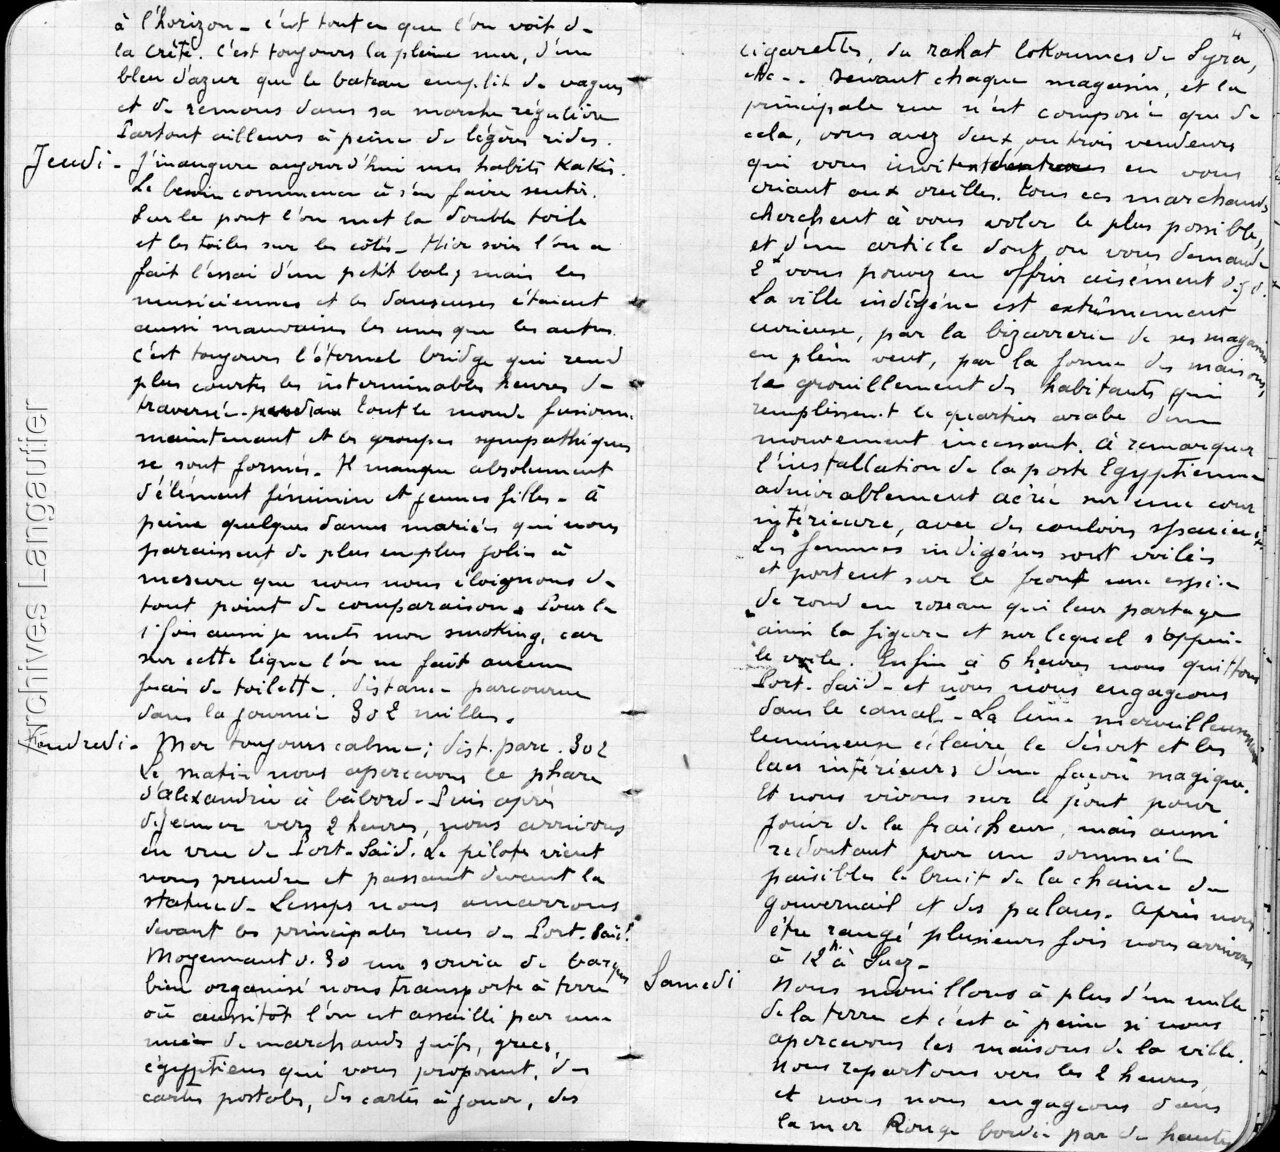 à l'horizon - c'est tout ce que l'on voit de
la Crête. C'est toujours la pleine mer, d'un
bleu d'azur que le bateau emplit de vagues
et de remous dans sa marche régulière
Partout ailleurs à peine de légères rides.
Jeudi - J'inaugure aujourd'hui mes habits Kakis.
Le besoin commence à s'en faire sentir.
Sur le pont l'on met la double toile
et les toiles sur les côtés - Hier soir l'on a
fait l'essai d'un petit bal, mais les
musiciennes et les danseuses étaient
aussi mauvaises les unes que les autres.
C'est toujours l'éternel bridge qui rend
plus courtes les interminables heures de
traversée. Tout le monde fusionne
maintenant et les groupes sympathiques
se sont formés. Il manque absolument
d'élément féminin et jeunes filles - A
peine quelques dames mariées qui nous
paraissent de plus en plus jolies à
mesure que nous nous éloignons de
tout point de comparaison. Pour la
1e fois aussi je mets mon smoking, car
sur cette ligne l'on ne fait aucun
frais de toilette. Distance parcourue
dans la journée 302 milles.
Vendredi - Mer toujours calme; dist. parc. 302
Le matin nous apercevons le phare
d'Alexandrie à bâbord - Puis après
déjeuner vers 2 heures, nous arrivons
en vue de Port-Saïd. Le pilote vient
nous prendre et passant devant la
statue de Lesseps nous amarrons
devant les principales rues de Port-Saïd.
Moyennant 0.30 un service de barques
bien organisé nous transporte à terre
où aussitôt l'on est assailli par une
nuée de marchands juifs, grecs,
égyptiens qui vous proposent, des
cartes postales, des cartes à jouer, des
4
cigarettes, du rahat lokoumes de Syra,
etc -. Devant chaque magasin, et la
principale rue n'est composée que de
cela, vous avez deux ou trois vendeurs
qui vous invitent en vous
criant aux oreilles. Tous ces marchands
cherchent à vous voler le plus possible,
et d'un article dont on vous demande
2f vous pouvez en offrir aisément
La ville indigène est extrêmement
curieuse, par la bizarrerie de ses magasins
en plein vent, par la forme des maisons,
le grouillement des habitants qui
remplissent le quartier arabe d'un
mouvement incessant. A remarquer
l'installation de la poste Egyptienne
admirablement aérée sur une cour
intérieure, avec des couloirs spacieux.
Les femmes indigènes sont voilées
et portent sur le front une espèce
de rond en roseau qui leur partage
ainsi la figure et sur lequel s'appuie
le voile. Enfin à 6 heures nous quittons
Port-Saïd - et nous nous engageons
dans le canal - La lune merveilleusement
lumineuse éclaire le désert et les
lacs intérieurs d'une façon magique.
Et nous vivons sur le pont pour
jouir de la fraîcheur, mais aussi
redoutant pour un sommeil
paisible le bruit de la chaîne du
gouvernail et des palans. Après nous
être rangé plusieurs fois nous arrivons
à 12h à Suez -
Samedi Nous mouillons à plus d'un mille
de la terre et c'est à peine si nous
apercevons les maisons de la ville.
Nous repartons vers les 2 heures,
et nous nous engageons dans
la mer Rouge bordée par de hautes
Archives Langautier